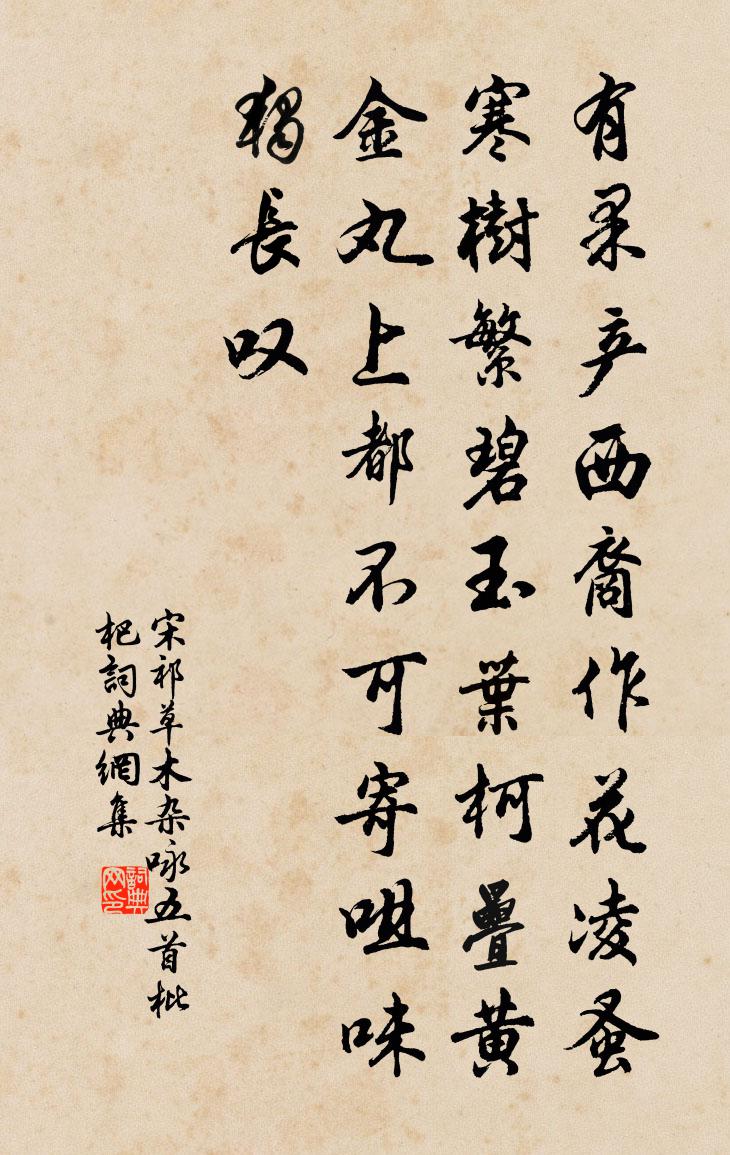 有果产西裔作花凌蚤
寒樹繁碧玉葉柯疊黄
金丸上都不可寄咀味
獨長叹
宋祁草木杂咏五首枇
杷詞典網集
詞典
网印